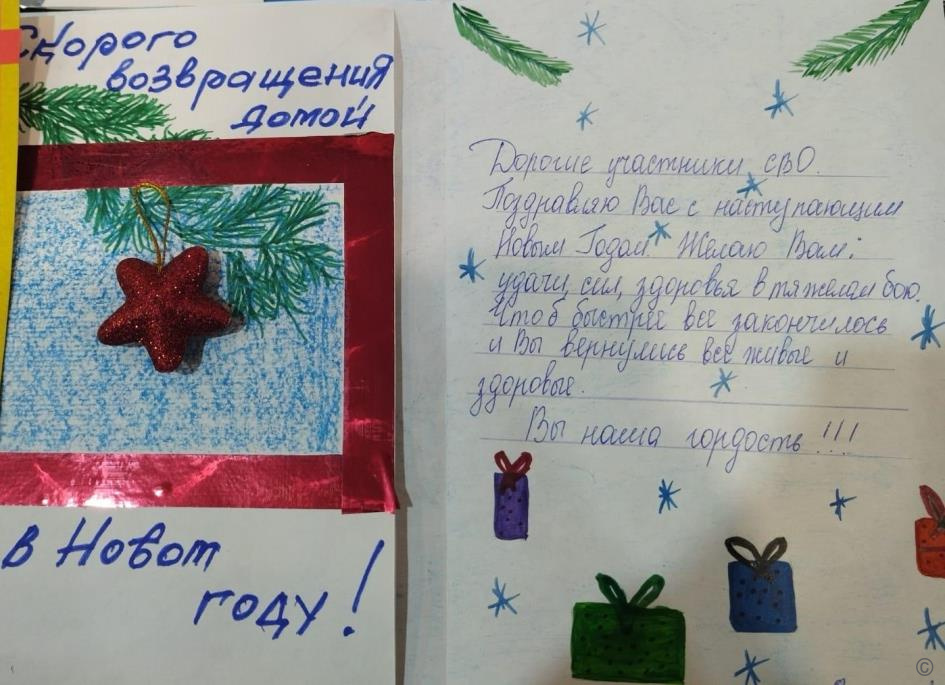 Скорого
возвращения
домой
в Новом
году!
Дорогие участники СВО.
Поздравляю Вас с наступающим
Новым Годом. Желаю Вам:
удачи, сил, здоровья в тяжелам бою.
Чтоб быстрее все закончилось
и Вы вернулись все живые и
здоровые.
Вы наша гордость!!!
©